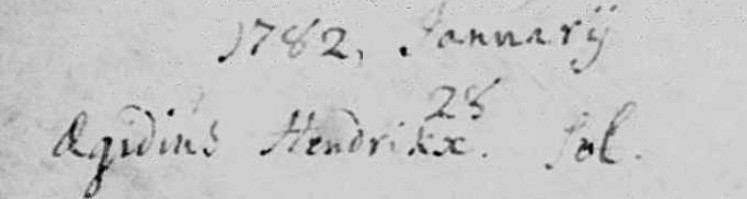 1782, Januarij
28
Ægidius Hendrikx. Sol.